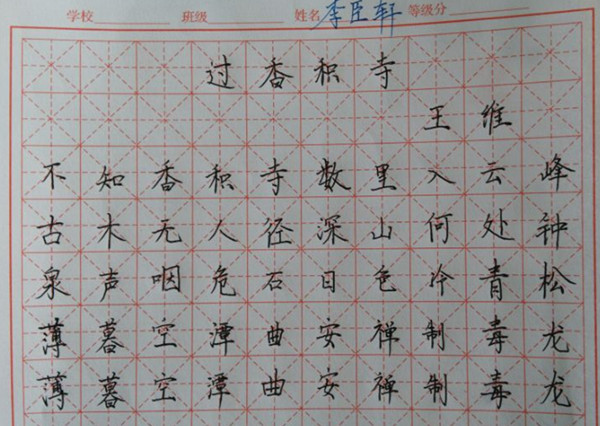 学校 班级 姓名 李臣轩 等级分
过香积寺
王维
不知香积寺数里入云峰
古木无人径深山何处钟
泉声咽危石日色冷青松
薄暮空潭曲安禅制毒龙
薄暮空潭曲安禅制毒龙